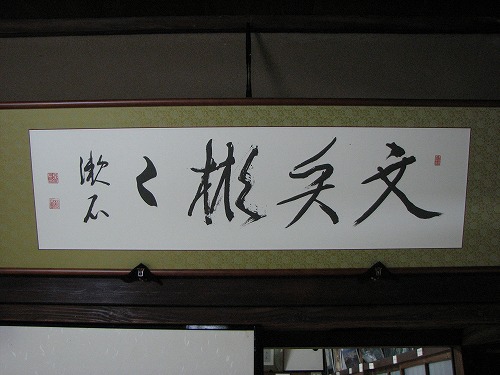 文質彬々
漱石